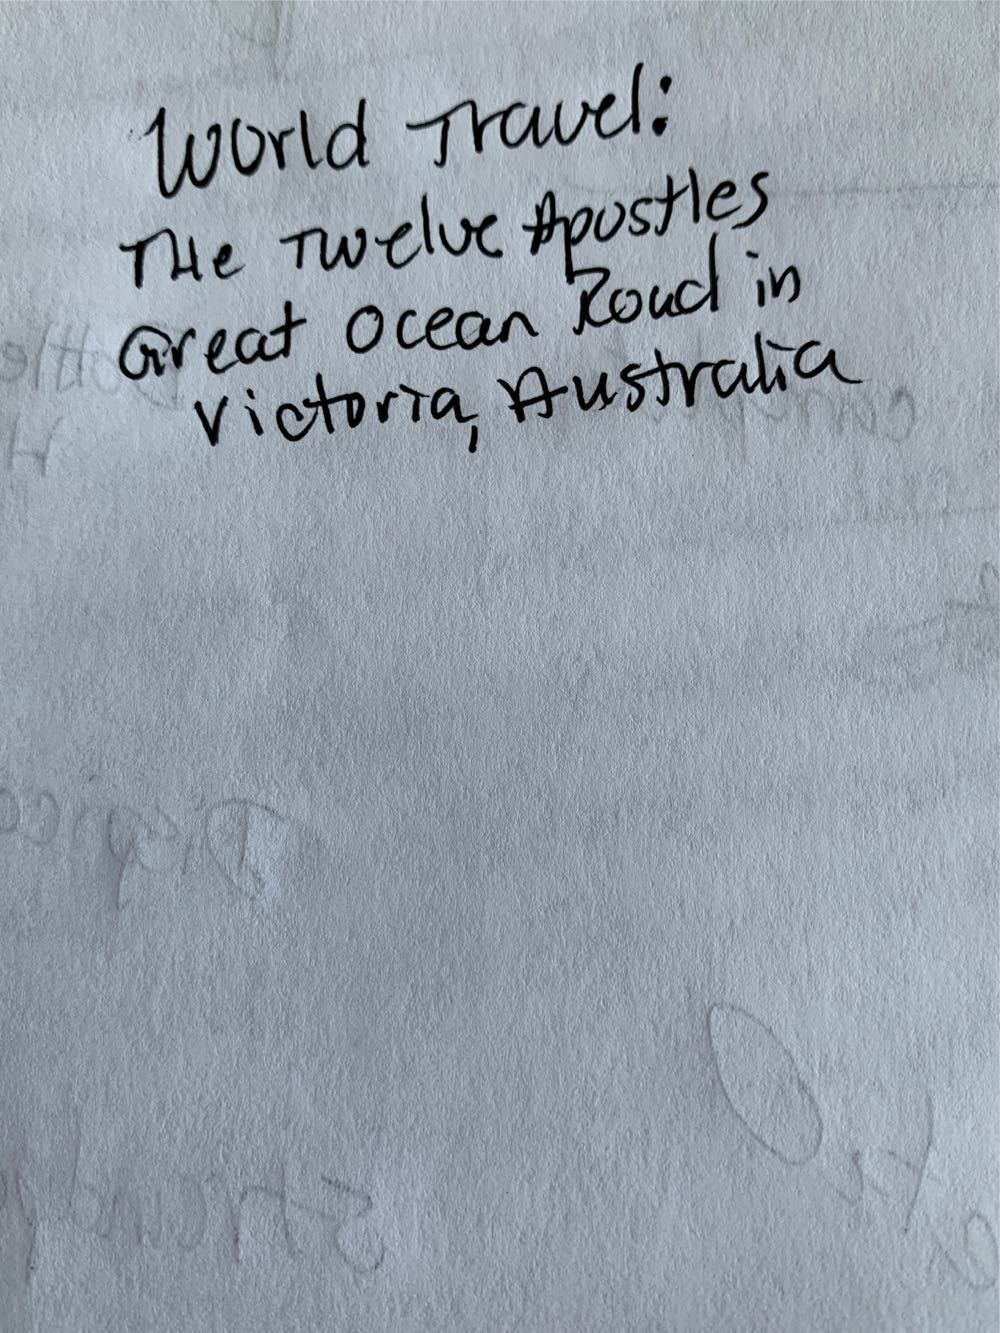 World Travel:
The Twelve Apostles
Great Ocean Road in
Victoria, Australia